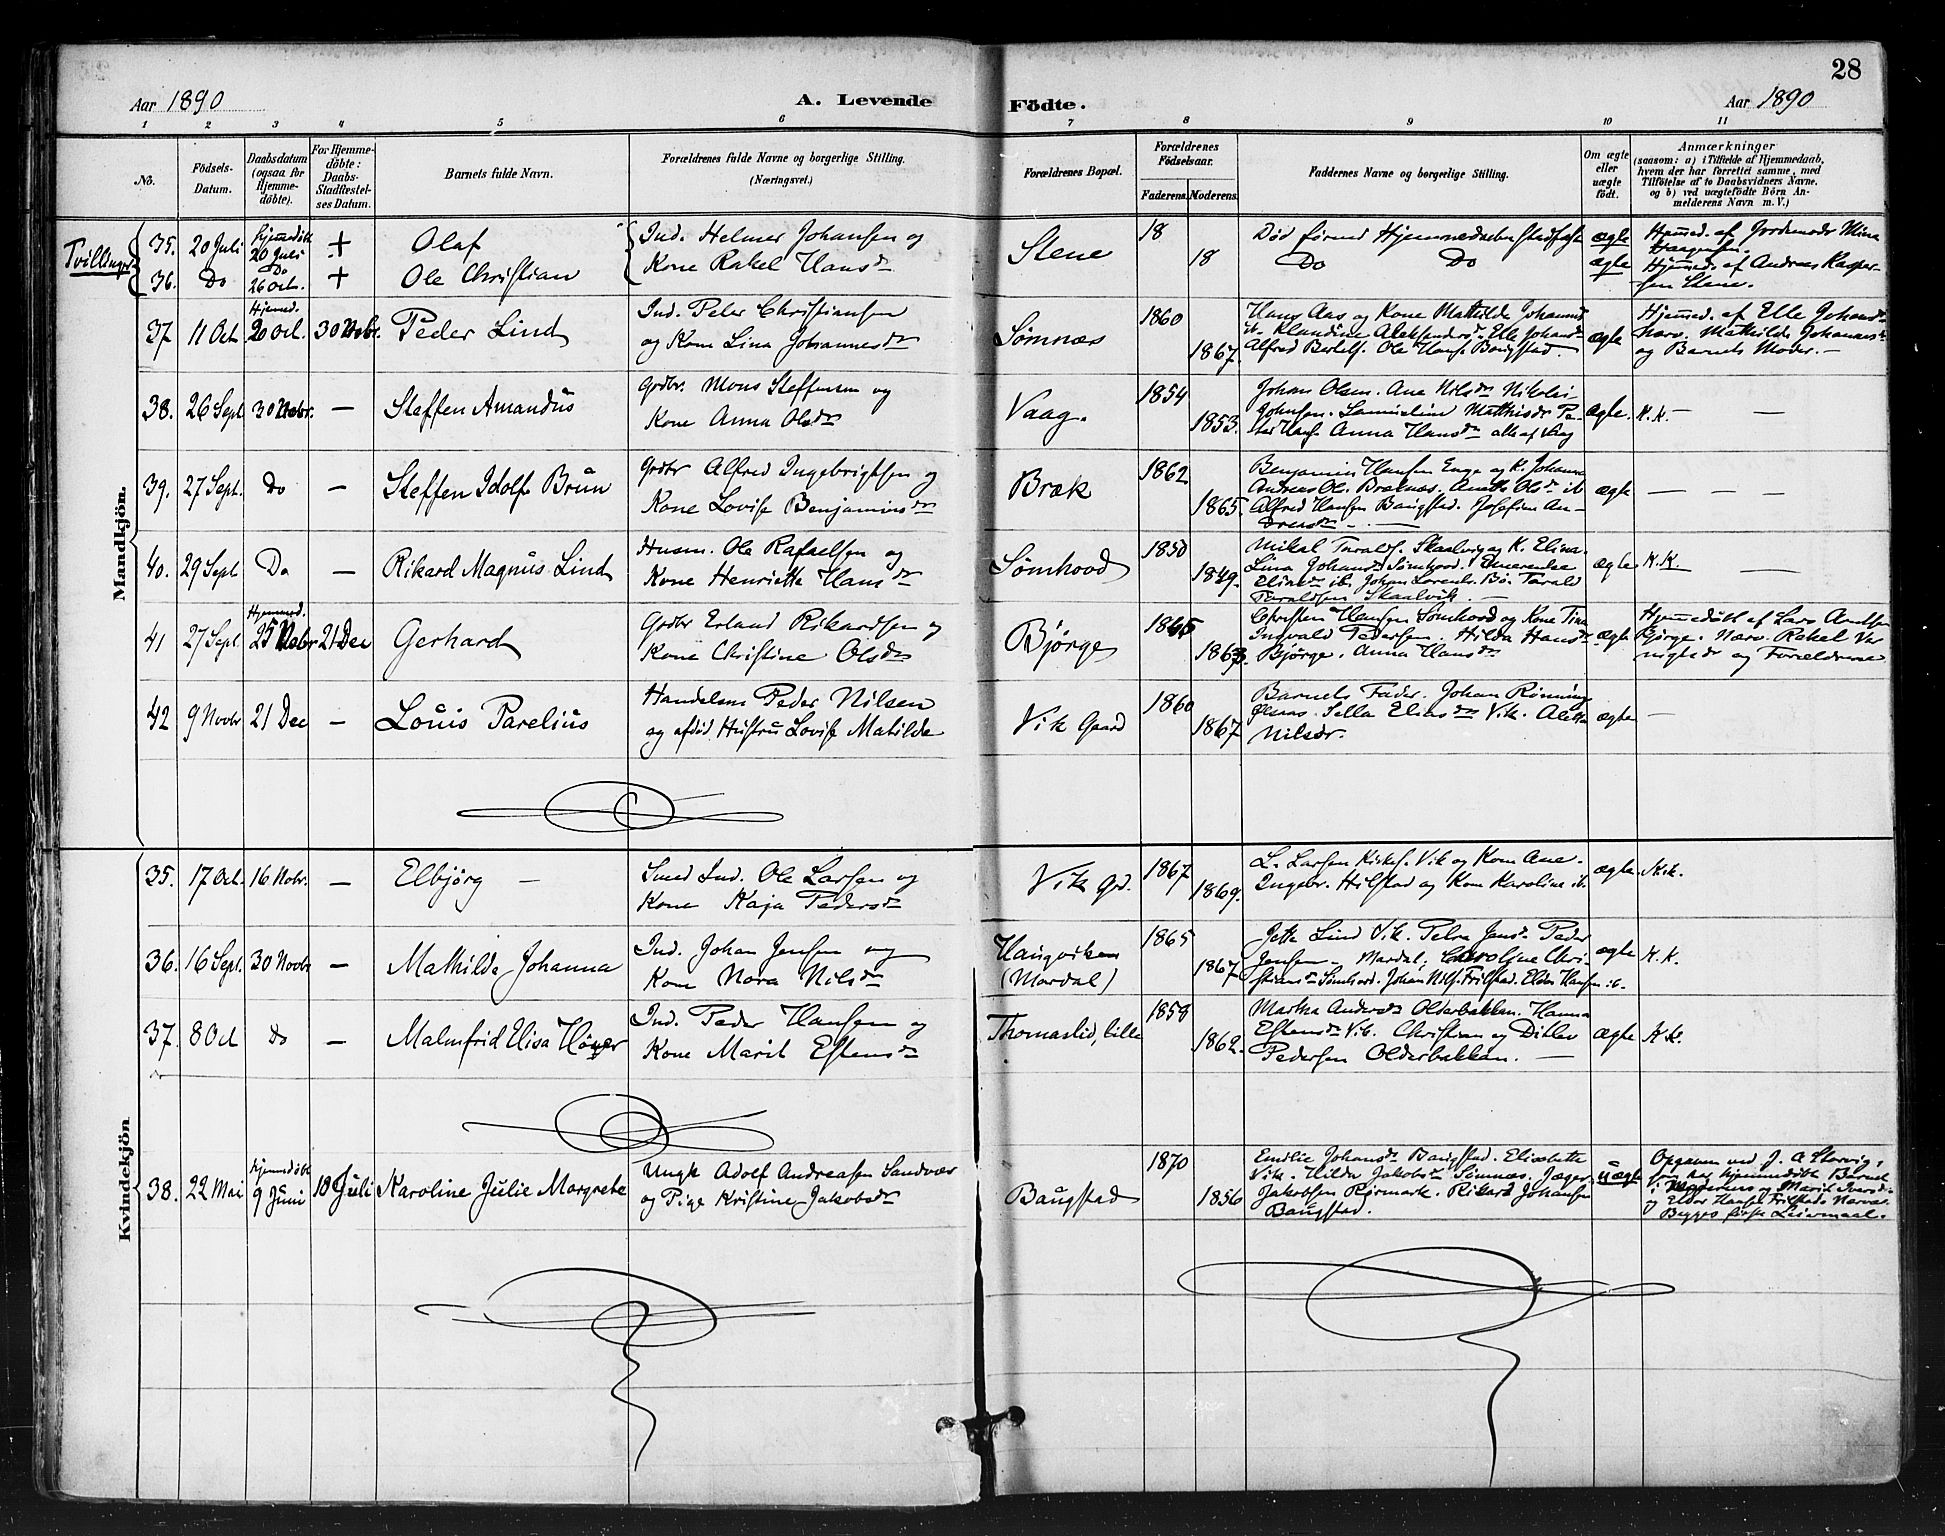 28
Aar 1890
A. Levende
Födte.
Aar 1890
1 2 3 4 5 6 7 8 9 10 11
No.
Födsels-
Datum.
Daabsdatum
(ogsaa for
Hjemme-
döbte).
For Hjemme-
döbte:
Daabs-
Stadfæstel-
ses Datum.
Barnets fulde Navn.
Forældrenes fulde Navne og borgerlige Stilling.
(Næringsvei.)
Forældrenes Bopæl.
Forældrenes
Födselsaar.
Faderens. Moderens.
Faddernes Navne og borgerlige Stilling.
Om ægte
eller
uægte
födt.
Anmærkninger
(saasom: a) i Tilfælde af Hjemmedaab,
hvem der har forrettet samme, med
Tilföielse af to Daabsvidners Navne.
og b) ved uægtefödte Börn An-
melderens Navn m. V.)
Mandkjön.
Tvillinger
35. 20 Juli Hjemmedöbt 20 Juli + Olaf
Ind. Helmer Johansen og
Kone Rakel Hansdr
Stene 18 18
Död förend Hjemmedaaben stadfæst ægte
Hjemmed. af Jordemoder Mina
36. Do Do 26 Oct. + Ole Christian
Do Do ægte
Hjemmed. af Andreas Kasper-
sen Stene.
37 11 Oct Hjemmed. 20 Oct. 30 Novbr. Peder Lind
Ind. Peter Christiansen
og Kone Lina Johannesdr
Sømnæs 1860 1867.
Hans Aas og Kone Mathilde Johannesd
ib. Klaudine Aleksandersdr. Elle Johansdr
Alfred Bertels. Ole Hans. Baugstad.
ægte
Hjemmed. af Elle Johansdr
Narv. Mathilde Johannesdr
og Barnets Moder. —
38. 26 Sept. 30 Novbr. — Steffen Amandus
Grdbr. Mons Steffensen og
Kone Anna Olsdr
Vaag. 1854 1853.
Johan Olsen. Ane Nilsdr Nikolai
Johnsen. Mathisdr Pe-
Anna Hansdr alle af Vaag
ægte. K.K. — —
39. 27 Sept. Do — Steffen Idolf Brun
Grdbr Alfred Ingebrigtsen og
Kone Lovise Benjaminsdr
Bræk 1862 1865.
Benjamin Hansen Enge og K. Johanna
Andreas Ols. Bræknæs. Anette Olsdr ib
Alfred Hansen Baugstad. Josefine An-
dreasdr — —
ægte — — —
40. 29 Sept Do — Rikard Magnus Lind
Husm. Ole Rafaelsen og
Kone Henriette Hansdr
Sømhovd 1850 1849.
Mikal Taralds. Skaalvig og K. Elina.
Lina Johansdr Sømhovd.
Elinedr ib. Johan Lorents. Bö. Tarald
Taraldsen Skaalvik. —
ægte K.K. —
41 27 Sept. Hjemmed. 25 Novbr 21 Dec Gerhard
Grdbr Erland Rikardsen og
Kone Christine Olsdr
Bjørge 1865 1863.
Christen Hansen Sømhovd og Kone Tina
Ingvald Pedersen. Hilda Hansdr
Bjørge. Anna Hansdr
ægte
Hjemmedöbt af Lars Arntsen
Bjørge. Narv. Rakel
og Forældrene
42 9 Novbr 21 Dec — Louis Parelius
Handelsm Peder Nilsen
og afdöd Hustru Lovise Matilde
Vik Gaard 1860 1867.
Barnets Fader. Johan Rønning
Sella Eliasdr Vik. Alette
Nilsdr.
ægte —
Kvindekjön
35. 17 Oct. 16 Novbr. — Elbjörg —
Smed Ind. Ole Larsen og
Kone Kaja Pedersdr
Vik Grd. 1867 1869.
L. Larsen Kirkes. Vik og Kone Ane.
Ingebr. Hilstad og Kone Karoline ib.
ægte K.K.
36. 16 Sept. 30 Novbr — Mathilde Johanna
Ind. Johan Jensen og
Kone Nora Nilsdr
Haugviken
(Mardal)
1865 1867.
Jetta Lind Vik. Petra Jensdr Peder
Jensen — Mardal; Caroline Chri-
stiansdr Sømhovd. Johan Nils. Frilstad. Eldor Hansen ib.
ægte K.K.
37. 8 Oct Do — Malmfrid Elisa Høyer
Ind. Peder Hansen og
Kone Marit Estensdr
Thomaslid, lille 1858 1862.
Martha Andersdr Olderbakken. Hanna
Estensdr Vik. Christian og Ditlev
Pedersen Olderbakken. —
ægte K.K.
38. 22 Mai Hjemmedöbt 9 Juni 10 Juli Karoline Julie Margrete
Ungk Adolf Andreasen Sandvær
og Pige Kristine Jakobsdr
Baugstad 1870 1856
Emilie Johansdr Baugstad. Elisabeth
Vik. Hilda Jakobsdr Sömnæs. Jæger
Jakobsen Bjrmark. Rikard Johansen
Baugstad.
uægte
Opgaven ved J. A. Storvig,
som har hjemmedöbt Barnet
og Marit Iversdr
og Eldor Hansen Frilstads Nærvær.
Begges förste Leiermaal.